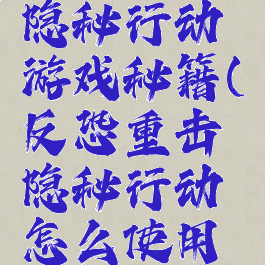 隐秘行动
游戏秘籍(
反恐重击
隐秘行动
怎么使用